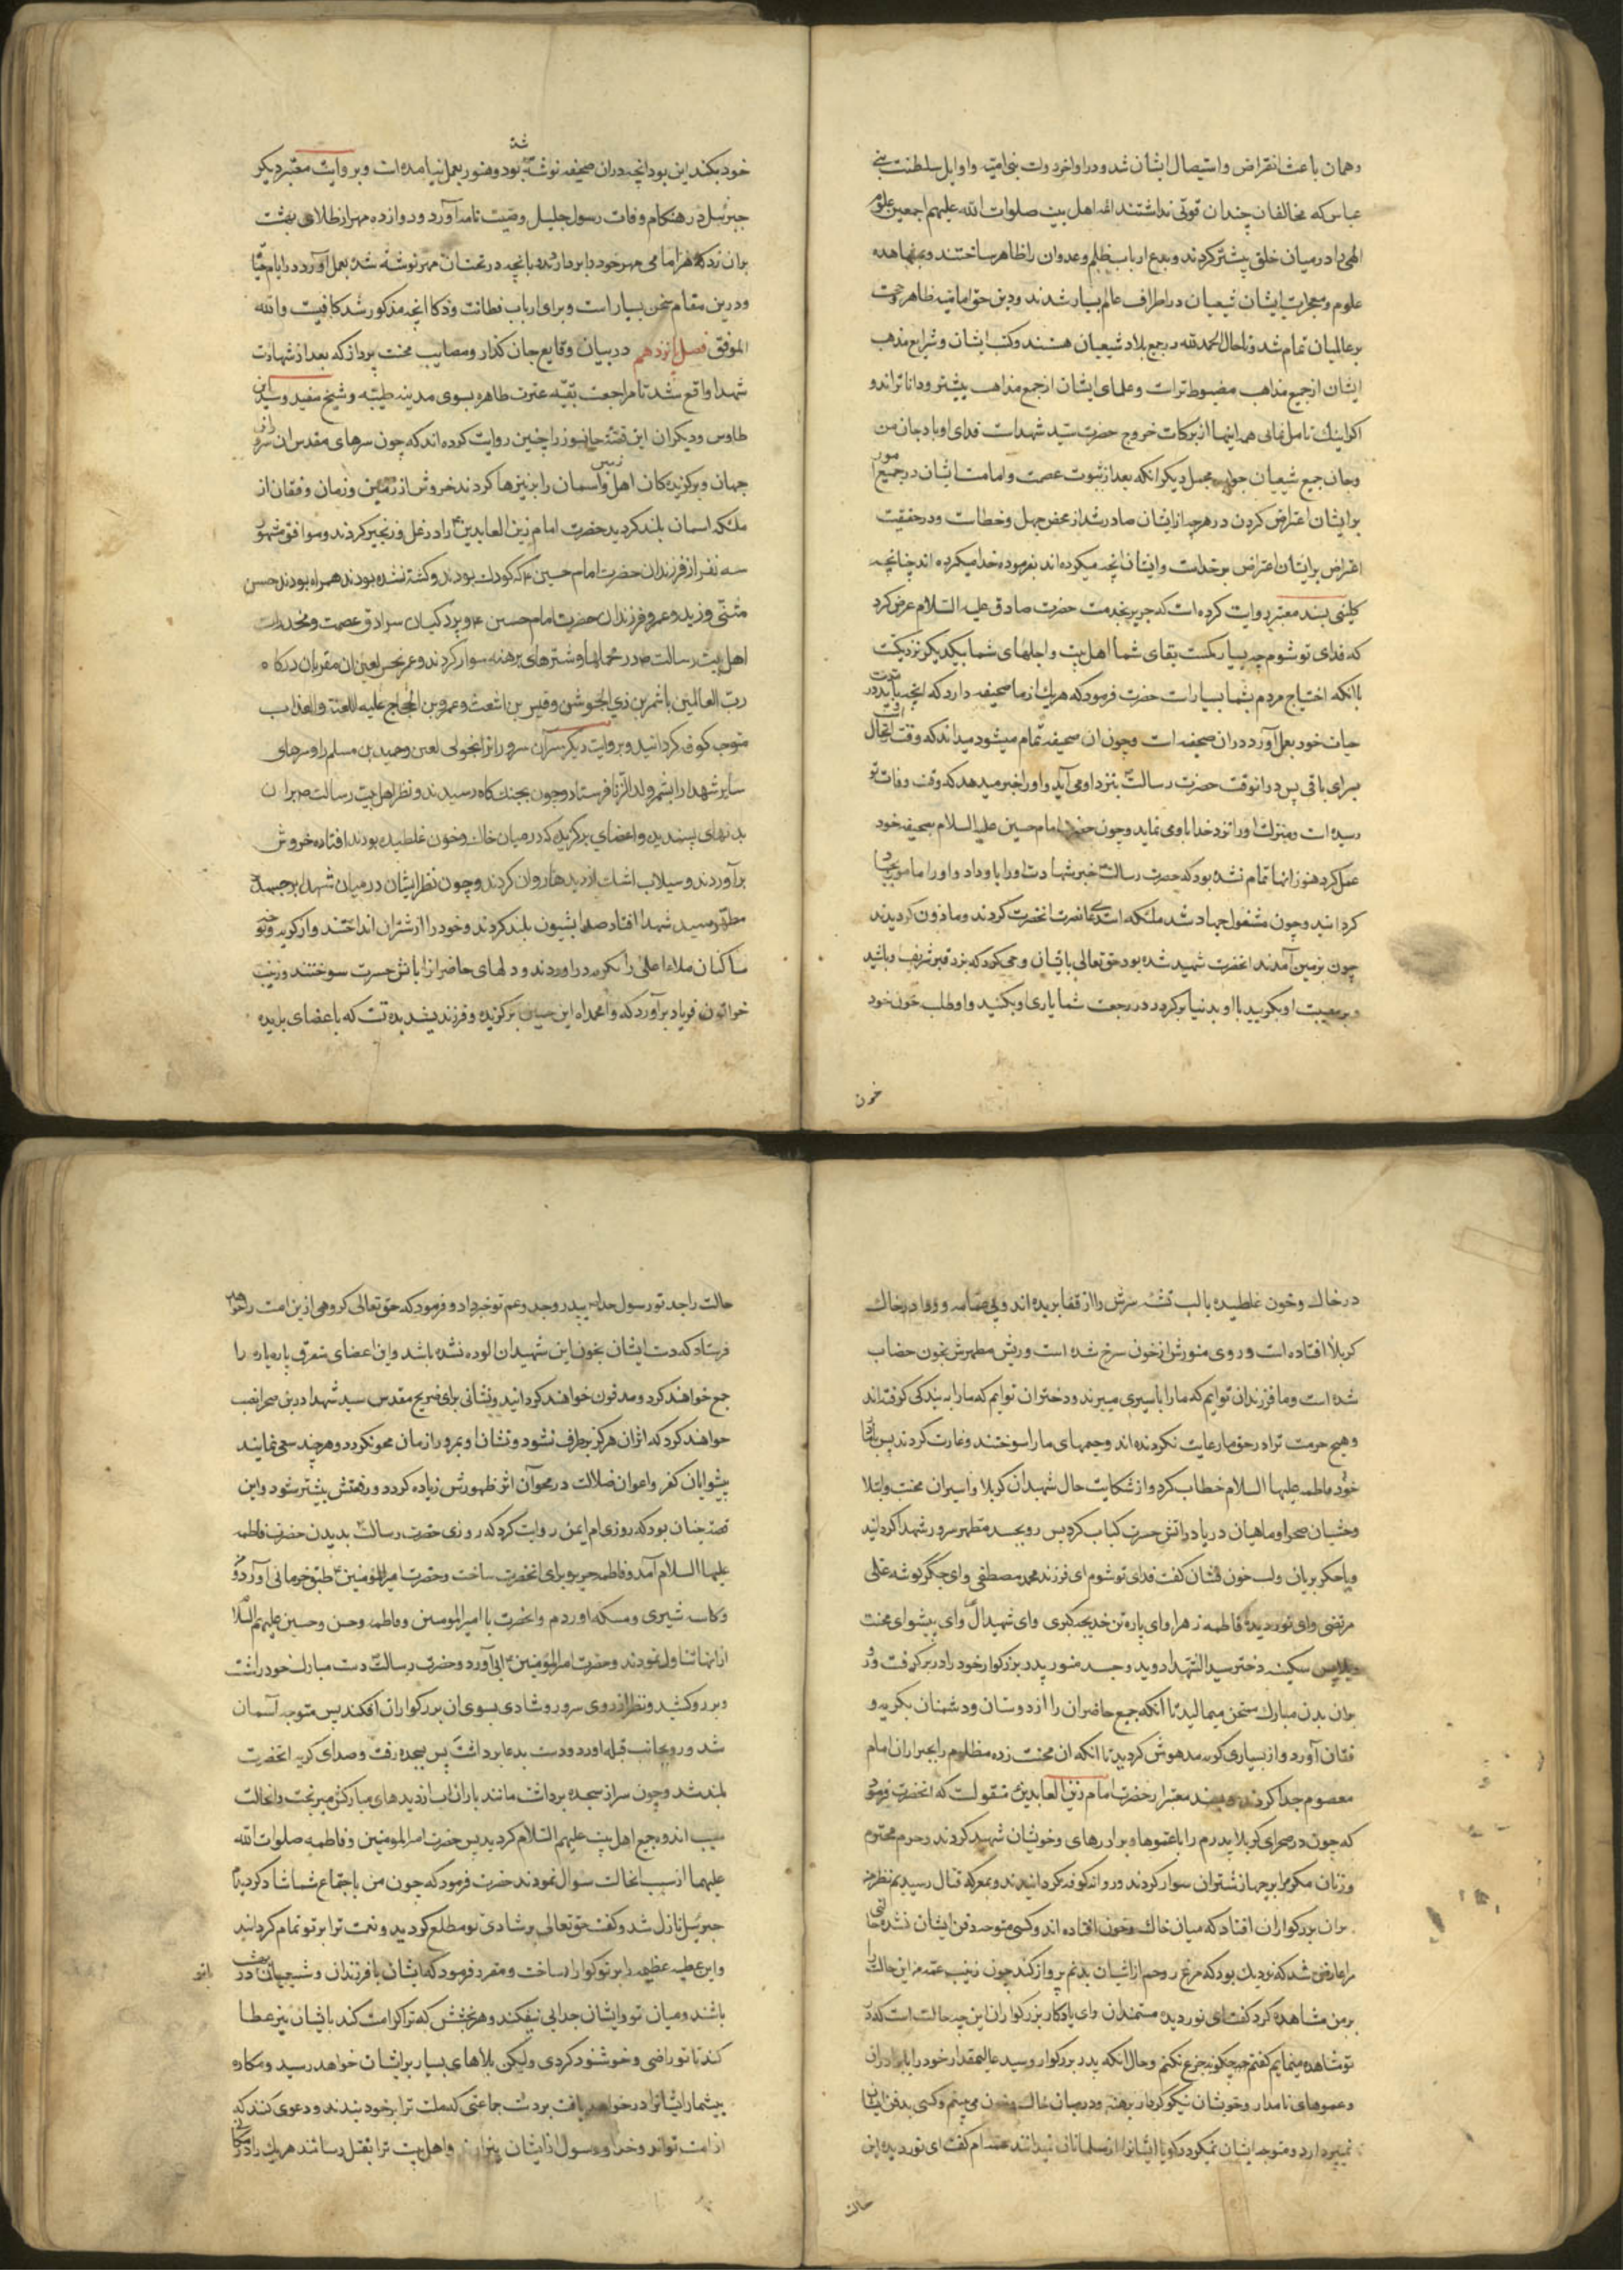 وهمان باعث انقراض واستیصال ایشان شد ودر اواخر دولت بنی امیه واوایل سلطنت بنی
عباس که مخالفان چندان قوتی نداشتند ائمه اهل بیت صلوات الله علیهم اجمعین علوم
الهی را در میان خلق بیشتر کردند وبدع ارباب ظلم وعدوان را ظاهر ساختند وبمشاهده
علوم ومعجزات ایشان شیعیان در اطراف عالم بسیار شدند ودین حق امامیه ظاهر وحجت
بر عالمیان تمام شد وتا حال الحمد لله در جمیع بلاد شیعیان هستند وکتب ایشان وشرایع مذهب
ایشان از جمیع مذاهب مضبوط تر است وعلمای ایشان از جمیع مذاهب بیشتر ودانا تر اند و
اکر اینک تامل نمائی همه اینها از برکات خروج حضرت سید شهداست فدای او باد جان من
وجان جمیع شیعیان جواب مجمل دیکر انکه بعد از ثبوت عصمت وامامت ایشان در جمیع امور
بر ایشان اعتراض کردن در هرچه از ایشان صادر شد از محض جهل وخطاست ودر حقیقت
اعتراض بر ایشان اعتراض بر خداست وایشان انچه میکرده اند بفرموده خدا میکرده اند چنانچه
کلینی بسند معتبر روایت کرده است که حریز بخدمت حضرت صادق علیه السلام عرض کرد
که فدای تو شوم چه بسیار کمست بقای شما اهل بیت واجلهای شما بیکدیکر نزدیکست
با انکه احتیاج مردم بشما بسیار است حضرت فرمود که هر یک از ما صحیفه دارد که انچه باید در مدت
حیات خود بعمل آورد در ان صحیفه است وچون ان صحیفه تمام میشود میداند که وقت ارتحال اوست
بسرای باقی پس در انوقت حضرت رسالت بنزد او می آید واو را خبر میدهد که وقت وفات تو
رسیده است ومنزلت او را نزد خدا باو می نماید وچون حضرت امام حسین علیه السلام بصحیفه خود
عمل کرد هنوز انها تمام نشده بود که حضرت رسالت خبر شهادت او را باو داد واو را مامور بجهاد
کردانید وچون مشغول جهاد شد ملئکه استدعای نصرت انحضرت کردند وماذون کردیدند
چون بزمین آمدند انحضرت شهید شده بود حق تعالی بایشان وحی کرد که نزد قبر شریف او باشید
وبر مصیبت او بکریید تا او بدنیا برکردد در رجعت شما یاری او بکنید واو طلب خون خود
خون
خود بکند این بود انچه در ان صحیفه نوشته شده بود وهنوز بعمل نیامده است وبروایت معتبر دیکر
جبرئیل در هنکام وفات رسول جلیل وصیت نامه آورد ودوازده مهر از طلای بهشت
بران زد که هر امامی مهر خود را بردارد وبانچه در تحت ان مهر نوشته شده بعمل آورد در ایام حیات
ودرین مقام سخن بسیار است وبرای ارباب فطانت وذکا انچه مذکور شد کافیست والله
الموفق فصل پانزدهم در بیان وقایع جان کداز ومصایب محنت پرداز که بعد از شهادت
شهدا واقع شد تا مراجعت بقیه عترت طاهره بسوی مدینه طیبه وشیخ مفید وسید ابن
طاوس ودیکران این قصه جانسوز را چنین روایت کرده اند که چون سرهای مقدس ان سروران
جهان وبرکزیده کان اهل زمین واسمان را بر نیزها کردند خروش از زمین وزمان وفغان از
ملئکه اسمان بلند کردید حضرت امام زین العابدین را در غل وزنجیر کردند وموافق مشهور
سه نفر از فرزندان حضرت امام حسین که کودک بودند وکشته نشده بودند همراه بودند حسن
مثنی وزید وعمرو فرزندان حضرت امام حسن وپردکیان سرادق عصمت ومخدرات
اهل بیت رسالت در محملها وشترهای برهنه سوار کردند وعمر نحس لعین ان مقربان درکاه
رب العالمین با شمر بن ذی الجوشن وقیس بن اشعث وعمرو بن الحجاج علیه اللعنة والعذاب
متوجه کوفه کردانید وبروایت دیکر سر آن سرور را با خولی لعین وحمید بن مسلم را وسرهای
سایر شهدا را بشمر ولد الزنا فرستاد وچون بجنکاه رسیدند ونظر اهل بیت رسالت بر ان
بدنهای پسندیده واعضای برکزیده که در میان خاک وخون غلطیده بودند افتاده خروش
برآوردند وسیلاب اشک از دیدها روان کردند وچون نظر ایشان در میان شهدا بر جسد
مطهر سید شهدا افتاد صدا بشیون بلند کردند وخود را از شتران انداختند واز کریه ونوحه
ساکنان ملاء اعلی را بکریه دراوردند ودلهای حاضر از باتش حسرت سوختند وزینب
خواتون فریاد برآورد که وا محمداه این حسین برکزیده وفرزند پسندیده تست که با اعضای بریده
در خاک وخون غلطیده با لب تشنه سرش را از قفا بریده اند وبی عمامه وردا در خاک
کربلا افتاده است وروی منورش از خون سرخ شده است وریش مطهرش بخون خضاب
شده است وما فرزندان توایم که ما را باسیری میبرند ودختران توایم که ما را به بندکی کرفته اند
وهیچ حرمت ترا در حق ما رعایت نکرده اند وخیمهای ما را سوختند وغارت کردند پس با مادر
خود فاطمه علیها السلام خطاب کرد واز شکایت حال شهیدان کربلا واسیران محنت وابتلا
وحشیان صحرا وماهیان دریا را در اتش حسرت کباب کرد پس رو بجسد مطهر سرور شهدا کردانید
وبا جکر بریان ولب خون فشان کفت فدای تو شوم ای فرزند محمد مصطفی وای جکر کوشه علی
مرتضی وای نور دیده فاطمه زهرا وای پاره تن خدیجه کبری وای شهید آل وای پیشوای محنت
پس سکینه دختر سید الشهدا دوید وجسد منور پدر بزرکوار خود را در بر کرفت ورو
بران بدن مبارک میمالید تا آنکه جمیع حاضران را از دوستان ودشمنان بکریه و
فغان آورد واز بسیاری کریه مدهوش کردید تا انکه ان محنت زده مظلوم را بجبر از ان امام
معصوم جدا کردند وبسند معتبر از حضرت امام زین العابدین منقولست که انحضرت فرمود
که چون در صحرای کربلا پدرم را با عموها وبرادرهای وخویشان شهید کردند وحرم محترم
وزنان مکرم او بر جهاز شتران سوار کردند وروانه کوفه کردانیدند وبمعرکه قتال رسیدیم نظر من
بران بزرکواران افتاد که میان خاک وخون افتاده اند وکسی متوجه دفن ایشان نشده حالتی
مرا عارض شد که نزدیک بود که مرغ روحم از اشیان بدنم پرواز کند چون زینب عمه من این حالت را
بر من مشاهده کرد کفت ای نور دیده مستمندان وای یادکار بزرکواران این چه حالت است که در
تو مشاهده مینمایم کفتم چکونه جزع نکنم وحال انکه پدر بزرکوار وسید عالیمقدار خود را با برادران
وعموهای نامدار وخویشان نیکو کردار برهنه ودر میان خاک وخون می بینم وکسی بدفن ایشان
نمیپردازد ومتوجه ایشان نمیکردد کویا ایشانرا از مسلمانان نمیدانند عمه ام کفت ای نور دیده این
حالت
حالت را جد تو رسول خدا به پدر وجد وعم تو خبر داد وفرمود که حق تعالی کروهی ازین امت را خواهد
فرستاد که دست ایشان بخون این شهیدان الوده نشده باشد واین اعضای متفرق پاره پاره را
جمع خواهند کرد ومدفون خواهند کردانید ونشانی برای ضریح مقدس سید شهدا درین صحرا نصب
خواهند کرد که اثر ان هرکز برطرف نشود ونشان او بمرور ازمان محو نکردد وهر چند سعی نمایند
پیشوایان کفر واعوان ضلالت در محو آن اثر ظهورش زیاده کردد ورفعتش بیشتر شود واین
قصه چنان بود که روزی ام ایمن روایت کرد که روزی حضرت رسالت بدیدن حضرت فاطمه
علیها السلام آمد وفاطمه حریره برای انحضرت ساخت وحضرت امیرالمؤمنین طبق خرمائی آورد ومن
وکاسه شیری ومسکه اوردم وانحضرت با امیرالمومنین وفاطمه وحسن وحسین علیهم السلام
از انها تناول نمودند وحضرت امیرالمؤمنین ابی آورد وحضرت رسالت دست مبارک خود را شست
وبر رو کشید ونظر از روی سرور وشادی بسوی ان بزرکواران افکند پس متوجه آسمان
شد ورو بجانب قبله اورد ودست بدعا برداشت پس بسجده رفت وصدای کریه انحضرت
بلند شد وچون سر از سجده برداشت مانند باران اب از دیدهای مبارکش میریخت وانحالت
سبب اندوه جمیع اهل بیت علیهم السلام کردید پس حضرت امیرالمومنین وفاطمه صلوات الله
علیهما از سبب انحالت سوال نمودند حضرت فرمود که چون من باجتماع شما شاد کردیدم
جبرئیل نازل شد وکفت حق تعالی بر شادی تو مطلع کردید ونعمت ترا بر تو تمام کردانید
واین عطیه عظیمه را بر تو کوارا ساخت ومقرر فرمود که ایشان با فرزندان وشیعیان در بهشت
باشند ومیان تو وایشان جدایی نیفکند وهر بخشش که ترا کرامت کند بایشان نیز عطا
کند تا تو راضی وخوشنود کردی ولیکن بلاهای بسیار بر ایشان خواهد رسید ومکاره
بیشمار ایشانرا در خواهد یافت بر دست جماعتی که ملت ترا بر خود بندند ودعوی کنند که
از امت تواند وخدا ورسول از ایشان بیزارند واهل بیت ترا بقتل رسانند هر یک را در مکانی